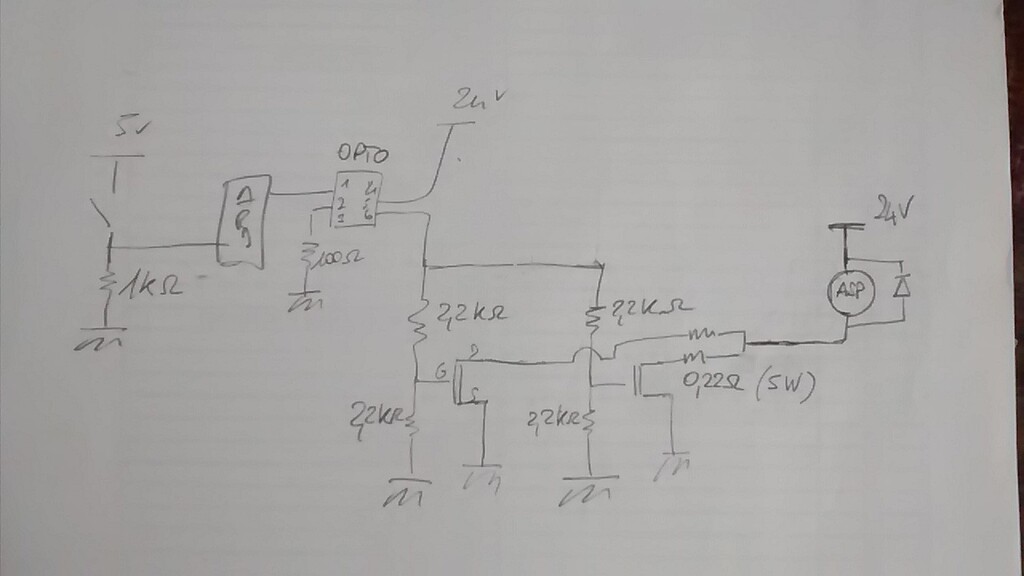 5V
24V
OPTO
1 4
2 5
3 6
1kΩ
100Ω
2,2kΩ
2,2kΩ
G
D
S
2,2kΩ
2,2kΩ
0,22Ω (5W)
24V
ASP